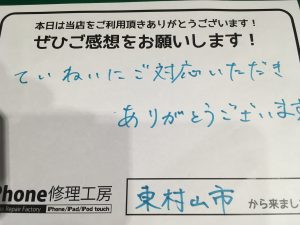 本日は当店をご利用頂きありがとうございます!
ぜひご感想をお願いします!
ていねいにご対応いただき
ありがとうございます
Phone修理工房
Repair Factory
iPhone/iPad/iPod touch
東村山市 から来まし